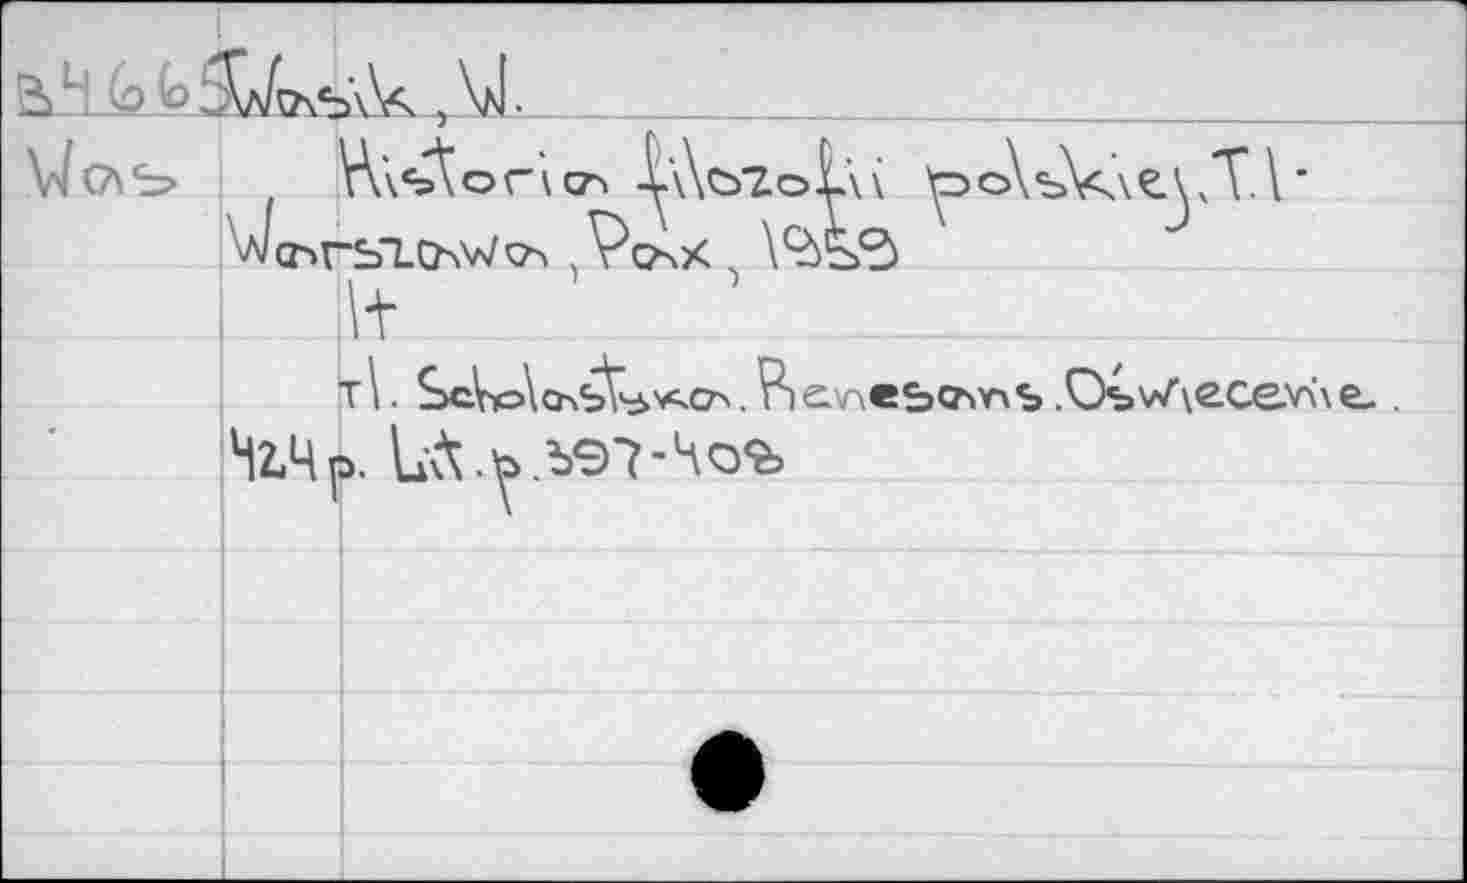 94665 Wąsik, W.
Wąs Historia filozofii polskiej, T.1.
Warszawa, Pax, 1959
1t
T1. Scholastyka. Renesans. Oświecenie.
424 p. Lit. p. 397-408